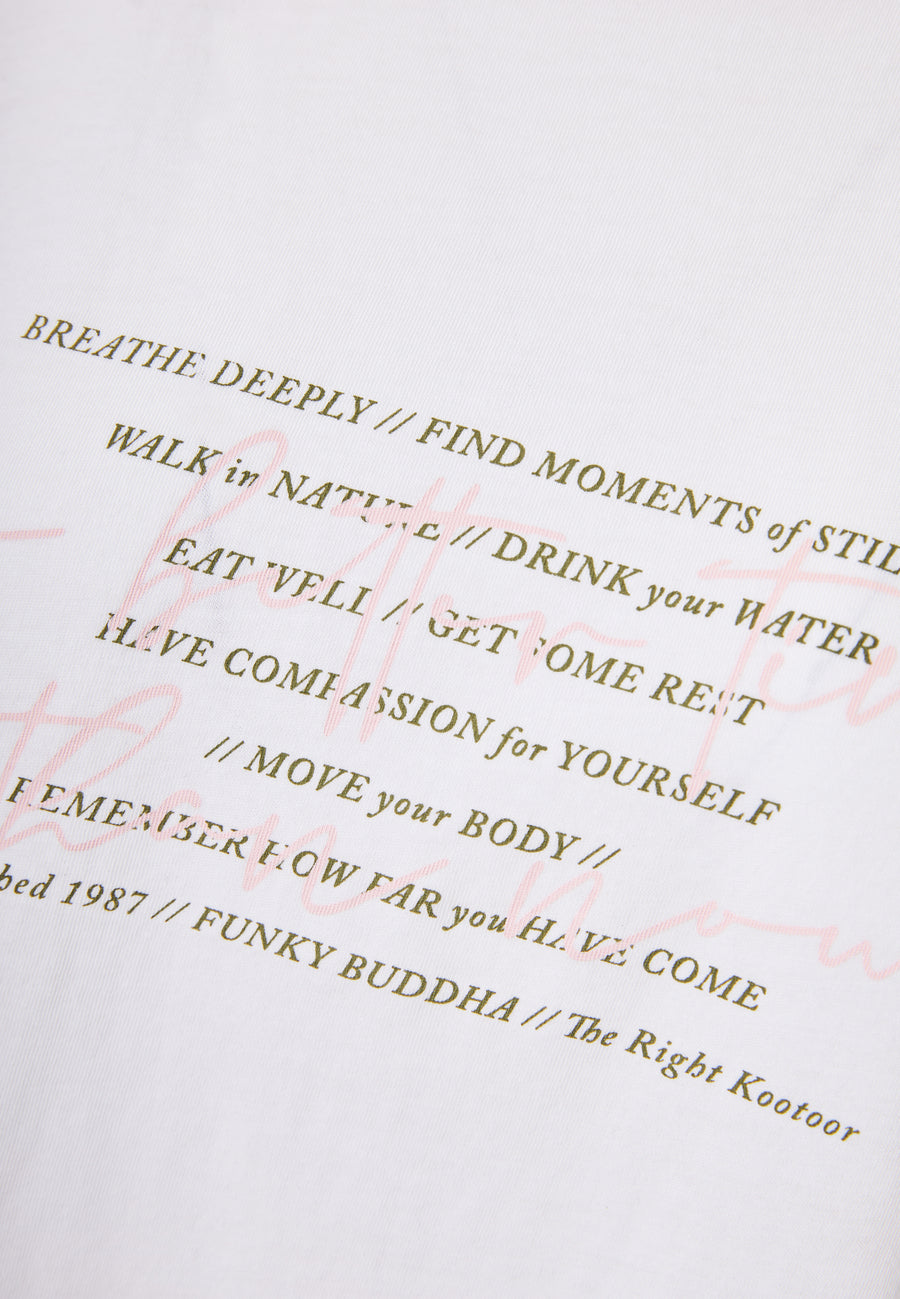 BREATHE DEEPLY // FIND MOMENTS of STIL
WALK in NATURE // DRINK your WATER
EAT WELL // GET SOME REST
HAVE COMPASSION for YOURSELF
// MOVE your BODY //
REMEMBER HOW FAR you HAVE COME
bed 1987 // FUNKY BUDDHA // The Right Kootoor
than now